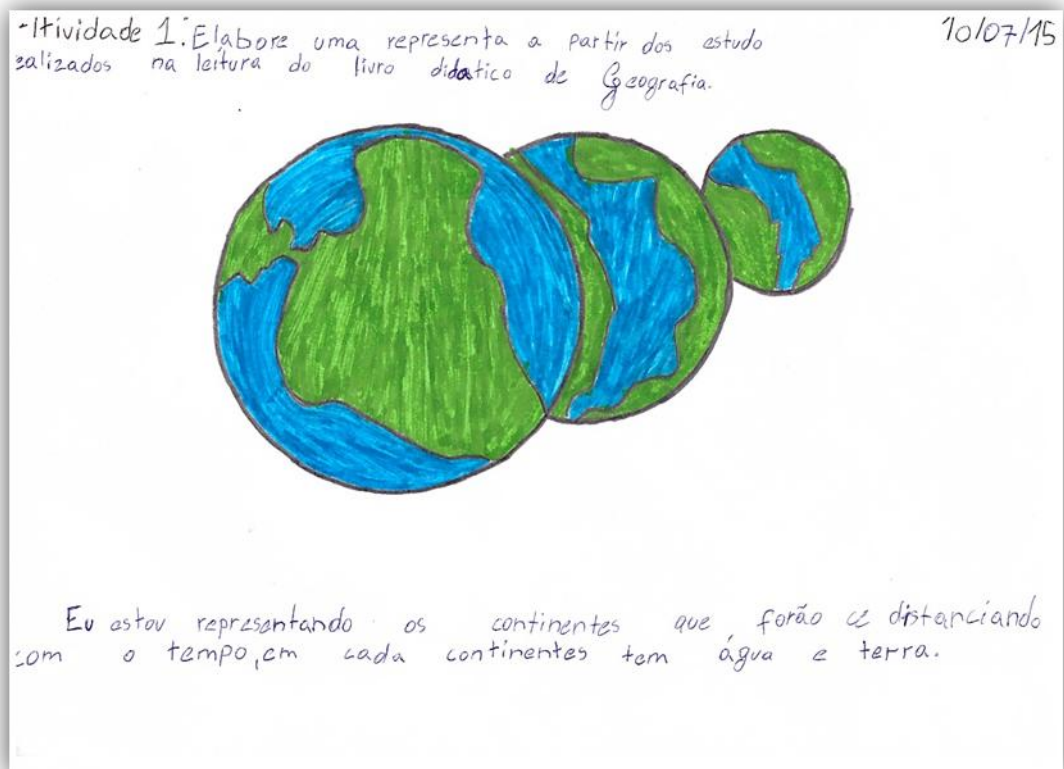 Atividade 1: Elabore uma representa a partir dos estudo 10/07/15
ealizados na leitura do livro didatico de Geografia.
Eu estou representando os continentes que forão ce distanciando
com o tempo, em cada continentes tem água e terra.